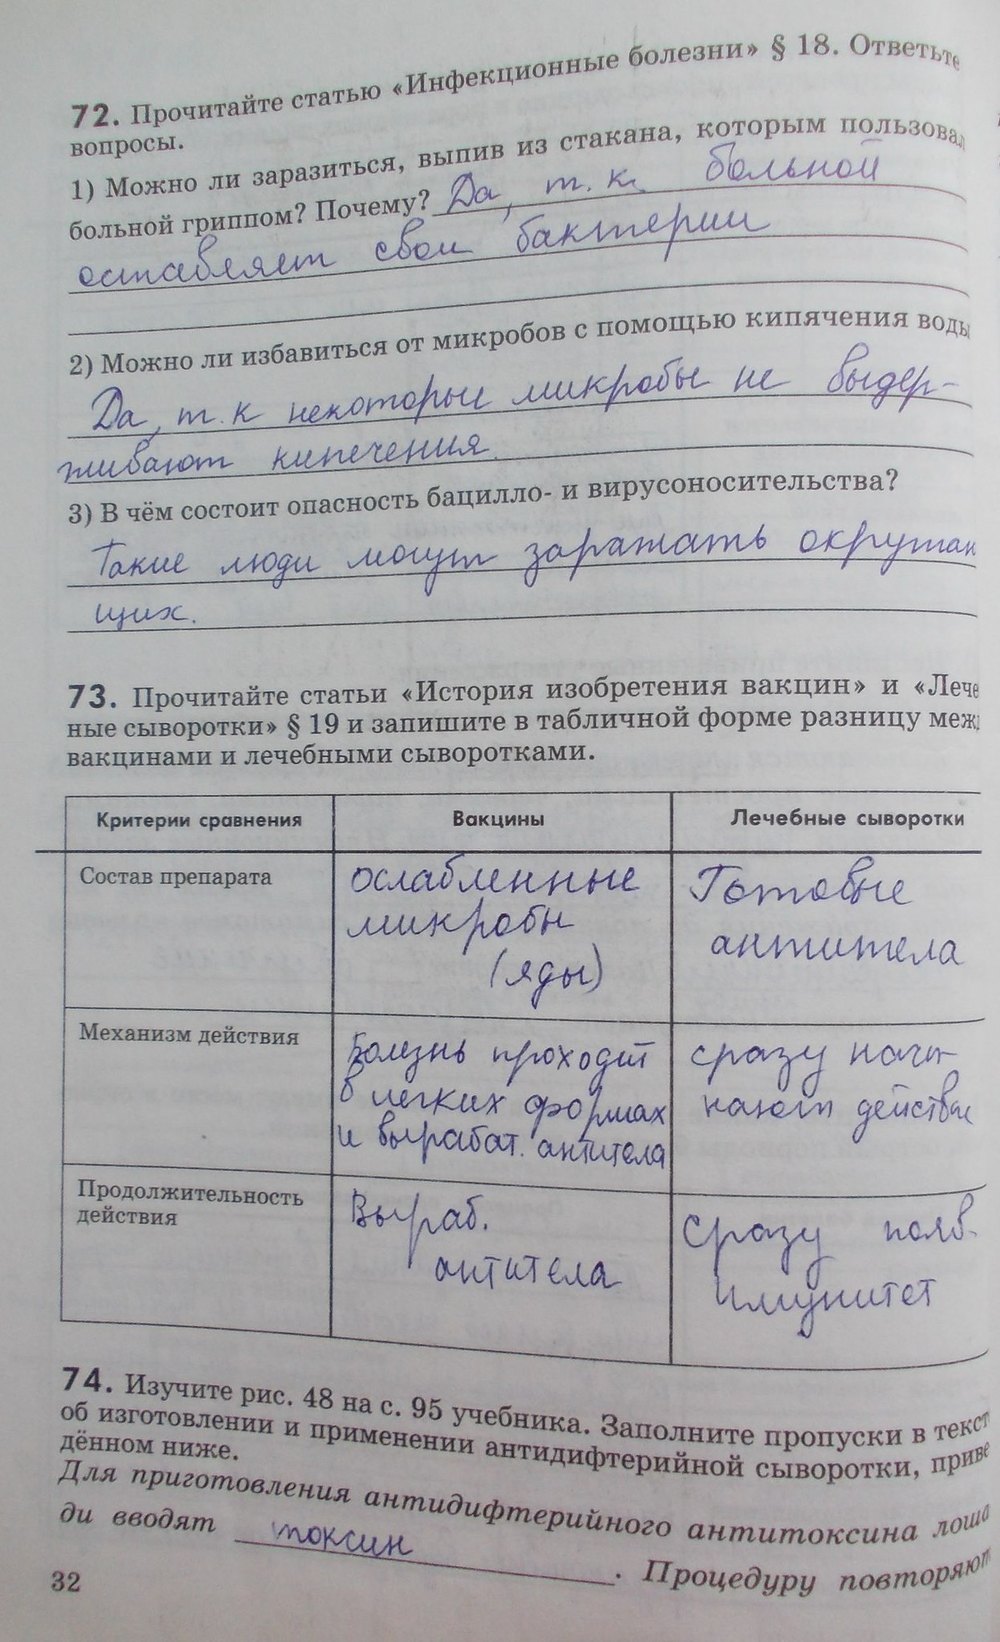 72. Прочитайте статью «Инфекционные болезни» § 18. Ответьте
вопросы.
1) Можно ли заразиться, выпив из стакана, которым пользовал
больной гриппом? Почему? Да, т.к. больной
оставляет свои бактерии
2) Можно ли избавиться от микробов с помощью кипячения воды
Да, т.к некоторые микробы не выдер-
живают кипечения.
3) В чём состоит опасность бацилло- и вирусоносительства?
Такие люди могут заражать окружаю
щих.
73. Прочитайте статьи «История изобретения вакцин» и «Лече
ные сыворотки» § 19 и запишите в табличной форме разницу меж
вакцинами и лечебными сыворотками.
Критерии сравнения Вакцины Лечебные сыворотки
Состав препарата ослабленные микробы (яды) Готовые антитела
Механизм действия Болезнь проходит в легких формах и выработ. антитела сразу начи- нают действие
Продолжительность действия Выраб. антитела Сразу появ. имунитет
74. Изучите рис. 48 на с. 95 учебника. Заполните пропуски в текст
об изготовлении и применении антидифтерийной сыворотки, приве
дённом ниже.
Для приготовления антидифтерийного антитоксина лоша
ди вводят токсин. Процедуру повторяют
32